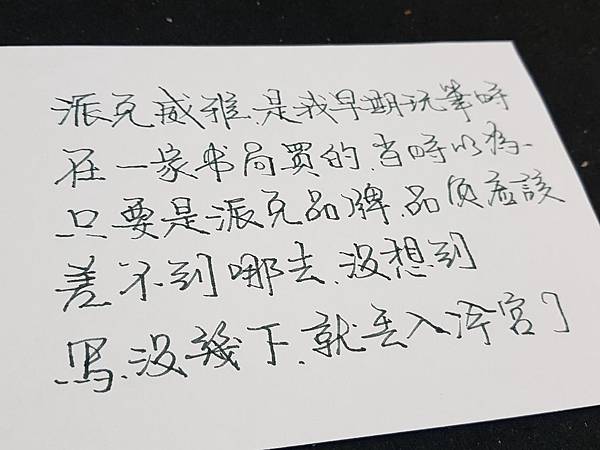 派克威雅、是我早期玩筆時
在一家书局買的、当時以為、
只要是派克品牌、品质應該
差不到哪去、没想到
寫、没幾下、就丟入冷宮了